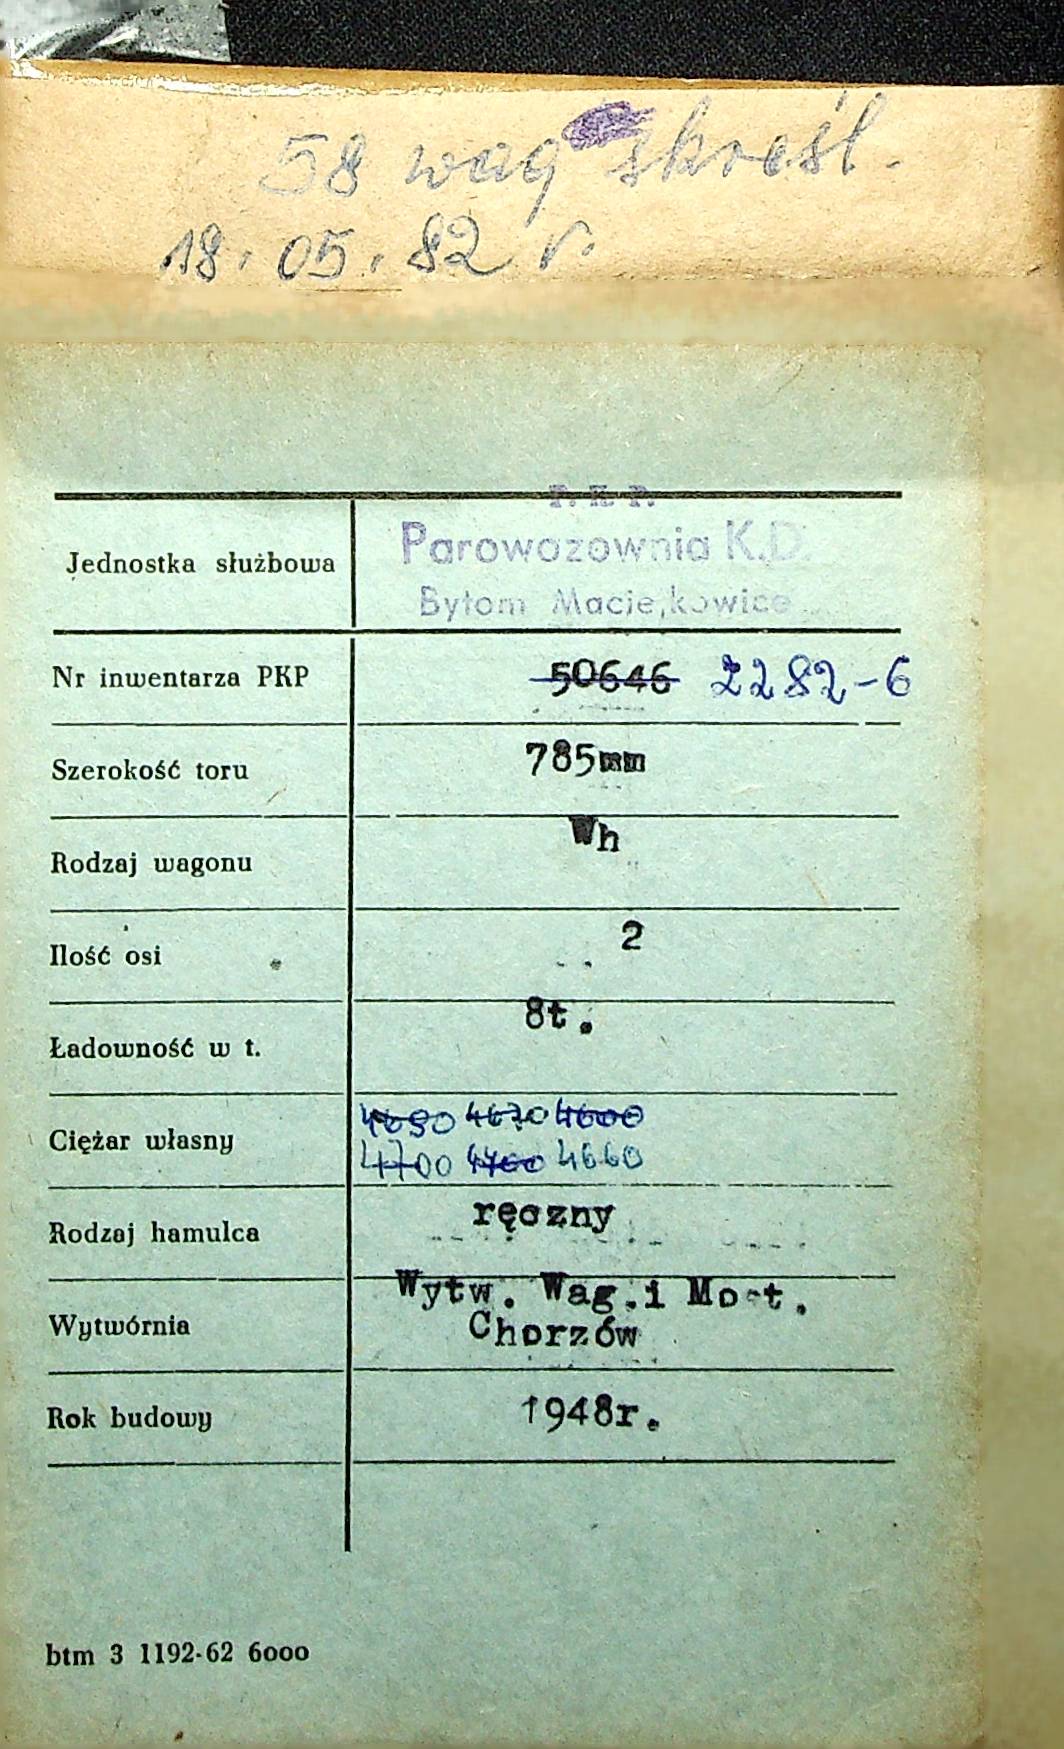 58 wag skreśl.
18.05.82 r.
P. K. P.
Jednostka służbowa Parowozownia K.D
Bytom Maciejkowice
Nr inwentarza PKP 50646 2282-6
Szerokość toru 785mm
Rodzaj wagonu Wh
Ilość osi 2
Ładowność w t. 8t.
4690 4670 4600
Ciężar własny
4700 4700 4660
Rodzaj hamulca ręczny
Wytw. Wag.i Most.
Wytwórnia Chorzów
Rok budowy 1948r.
btm 3 1192-62 6000